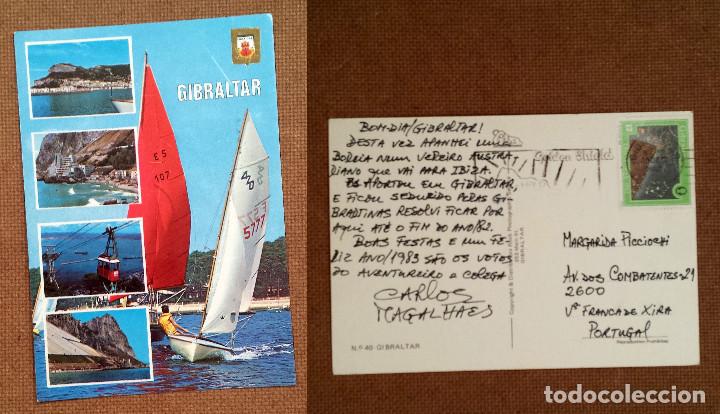 GIBRALTAR
E S
107
5777
BOM-DIA/GIBRALTAR!
DESTA VEZ APANHEI UMA
BOLEIA NUM VELEIRO AUSTRA
LIANO QUE VAI PARA IBIZA.
APORTOU EM GIBRALTAR,
E FICOU SEDUZIDO PELAS GI
BRALTINAS RESOLVI FICAR POR
AQUI ATÉ O FIM DO ANO/82.
BOAS FESTAS E UM FE-
LIZ ANO/1983 SÃO OS VOTOS
DO AVENTUREIRO E COLEGA
CARLOS
MAGALHAES
Nº 40-GIBRALTAR
MARGARIDA PICCIOCHI
AV. DOS COMBATENTES-29
2600
Vª FRANCA DE XIRA
PORTUGAL
Reproduction Prohibited
todocoleccion.net